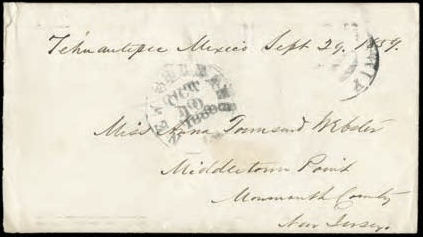 Tehuantepec Mexico Sept 29. 1859.
NEW ORLEANS
OCT
Miss Anna Townsend Webster
Middletown Point
Monmouth County
New Jersey.